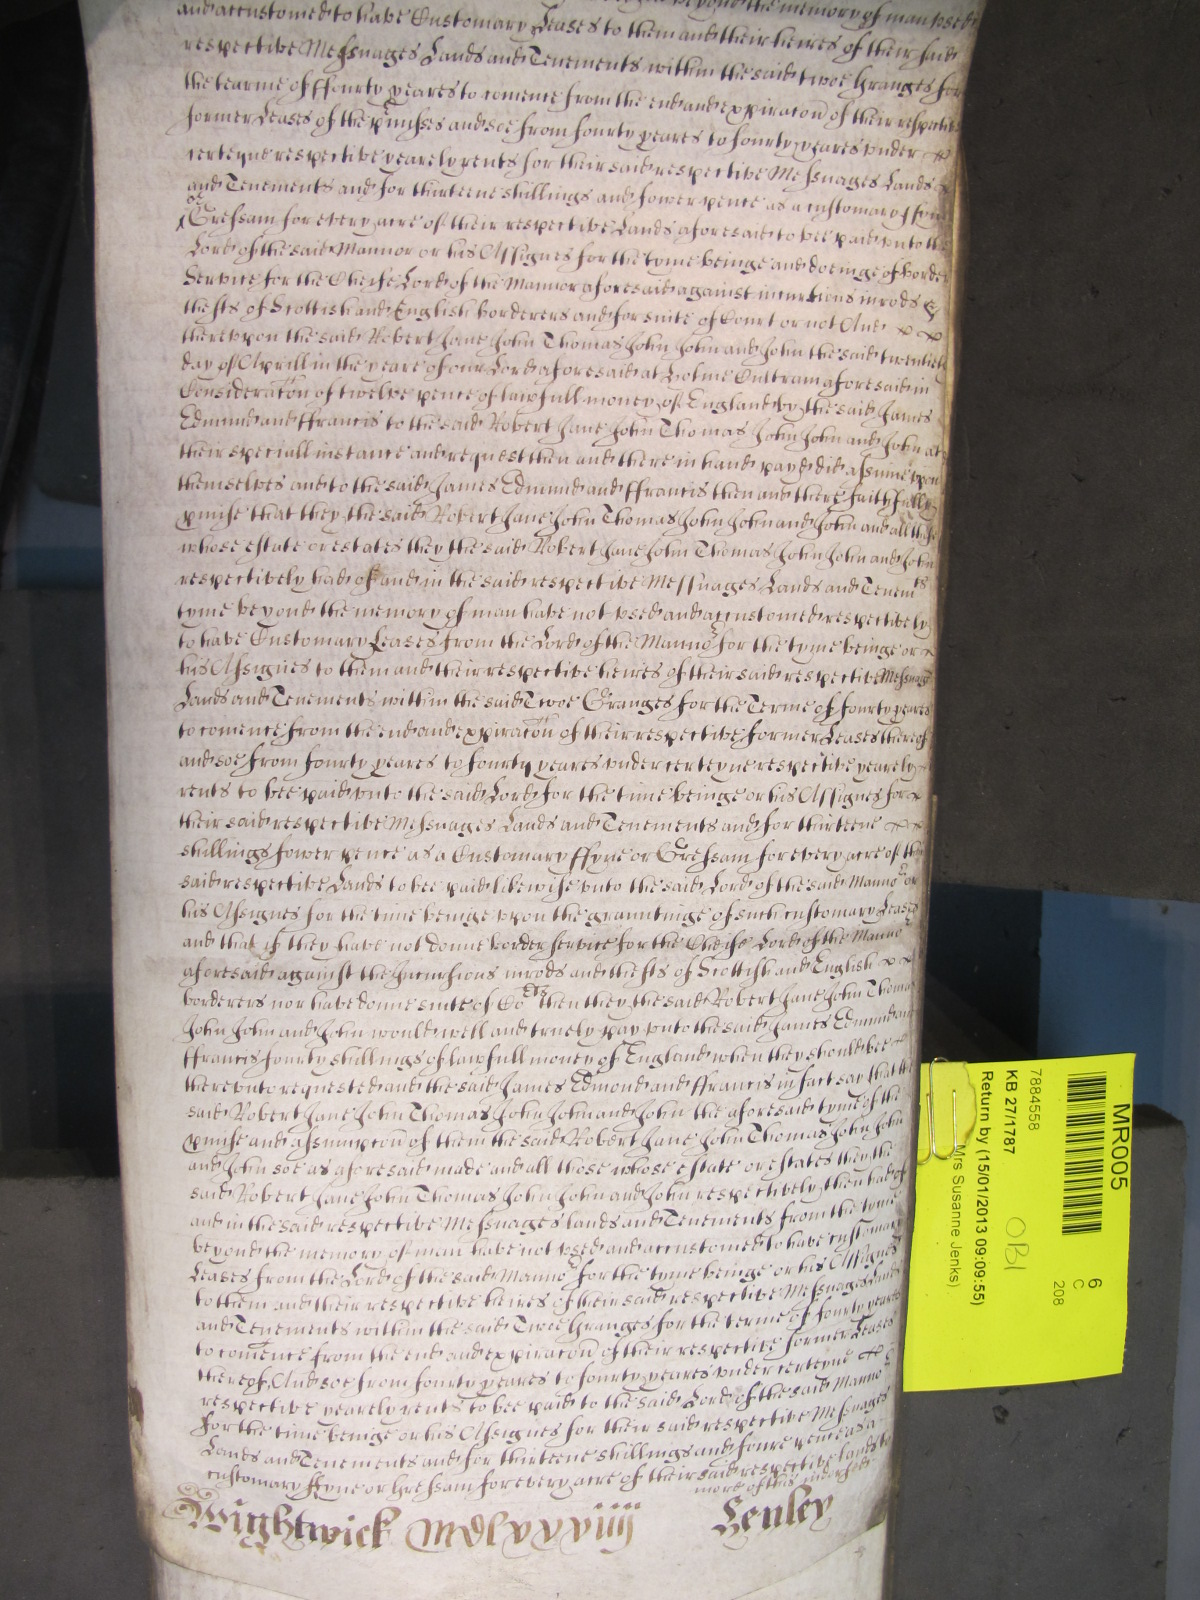 beyond the memory of man vsed
and accustomed to have Customary Leases to them and their heires of their said
respective Messuages Lands and Tenements within the said twoe Granges for
the tearme of ffourty yeares to comence from the end and expiracon of their respective
former Leases of the pmisses and soe from fourty yeares to fourty yeares vnder
certeyne respective yearely rents for their said respective Messuages Lands
and Tenements and for thirteene shillings and fower pence as a customary fyne
or
Gressam for every acre of their respective Lands aforesaid to bee paid vnto the
Lord of the said Mannor or his Assignes for the tyme beinge and doeinge of border
Service for the Cheife Lord of the Mannor aforesaid against incursions inrods &
thefts of Scottish and English borderers and for suite of Court or not And
therevpon the said Robert Jane John Thomas John John and John the said twentieth
day of Aprill in the yeare of our Lord aforesaid at Holme Cultram aforesaid in
Consideracon of twelve pence of lawfull money of England by the said James
Edmund and ffrancis to the said Robert Jane John Thomas John John and John at
their speciall instance and request then and there in hand payd did assume vpon
themselves and to the said James Edmund and ffrancis then and there faithfully
pmise that they the said Robert Jane John Thomas John John and John and all those
whose estate or estates they the said Robert Jane John Thomas John John and John
respectively had of and in the said respective Messuages Lands and Tenemts
tyme beyond the memory of man have not vsed and accustomed respectively
to have Customary Leases from the Lord of the Mannor for the tyme beinge or
his Assignes to them and their respective heires of their said respective Messuag
Lands and Tenements within the said Twoe Granges for the Terme of fourty yeares
to comence from the end and expiracon of their respective former Leases thereof
and soe from fourty yeares to fourty yeares vnder certeyne respective yearely
rents to bee paid vnto the said Lord for the time beinge or his Assignes for
their said respective Messuages Lands and Tenements and for thirteene
shillings fower pence as a Customary ffyne or Gressam for every acre of the
said respective Lands to bee paid likewise vnto the said Lord of the said Mannor or
his Assignes for the time beinge vpon the grauntinge of such customary Leases
and that if they have not donne border service for the Cheife Lord of the Mannor
aforesaid against the Incursions inrods and thefts of Scottish and English
borderers nor have donne suite of Cort then they the said Robert Jane John Thomas
John John and John would well and truely pay vnto the said James Edmund and
ffrancis fourty shillings of lawfull money of England when they should bee
therevnto requested and the said James Edmond and ffrancis in fact say that the
said Robert Jane John Thomas John John and John the aforesaid tyme of the
pmise and assumpcon of them the said Robert Jane John Thomas John John
and John soe as aforesaid made and all those whose estate or estates they the
said Robert Jane John Thomas John John and John respectively then had of
and in the said respective Messuages lands and Tenements from the tyme
beyond the memory of man have not vsed and accustomed to have customary
Leases from the Lord of the said Mannor for the tyme beinge or his Assignes
to them and their respective heires of their said respective Messuages Lands
and Tenements within the said Twoe Granges for the terme of fourty yeares
to comence from the end and expiracon of their respective former Leases
thereof, And soe from fourty yeares to fourty yeares vnder certeyne
respective yearely rents to bee paid to the said Lord of the said Mannor
for the time beinge or his Assignes for their said respective Messuages
Lands and Tenements and for thirteene shillings and foure pence as a
customary ffyne or Gressam for every acre of their said respective lands to
more of this
Wightwick Mdlxxxviiij Henley
MR005
7884558
KB 27/1787
Return by (15/01/2013 09:09:55)
Mrs Susanne Jenks)
OBI
6
C
208